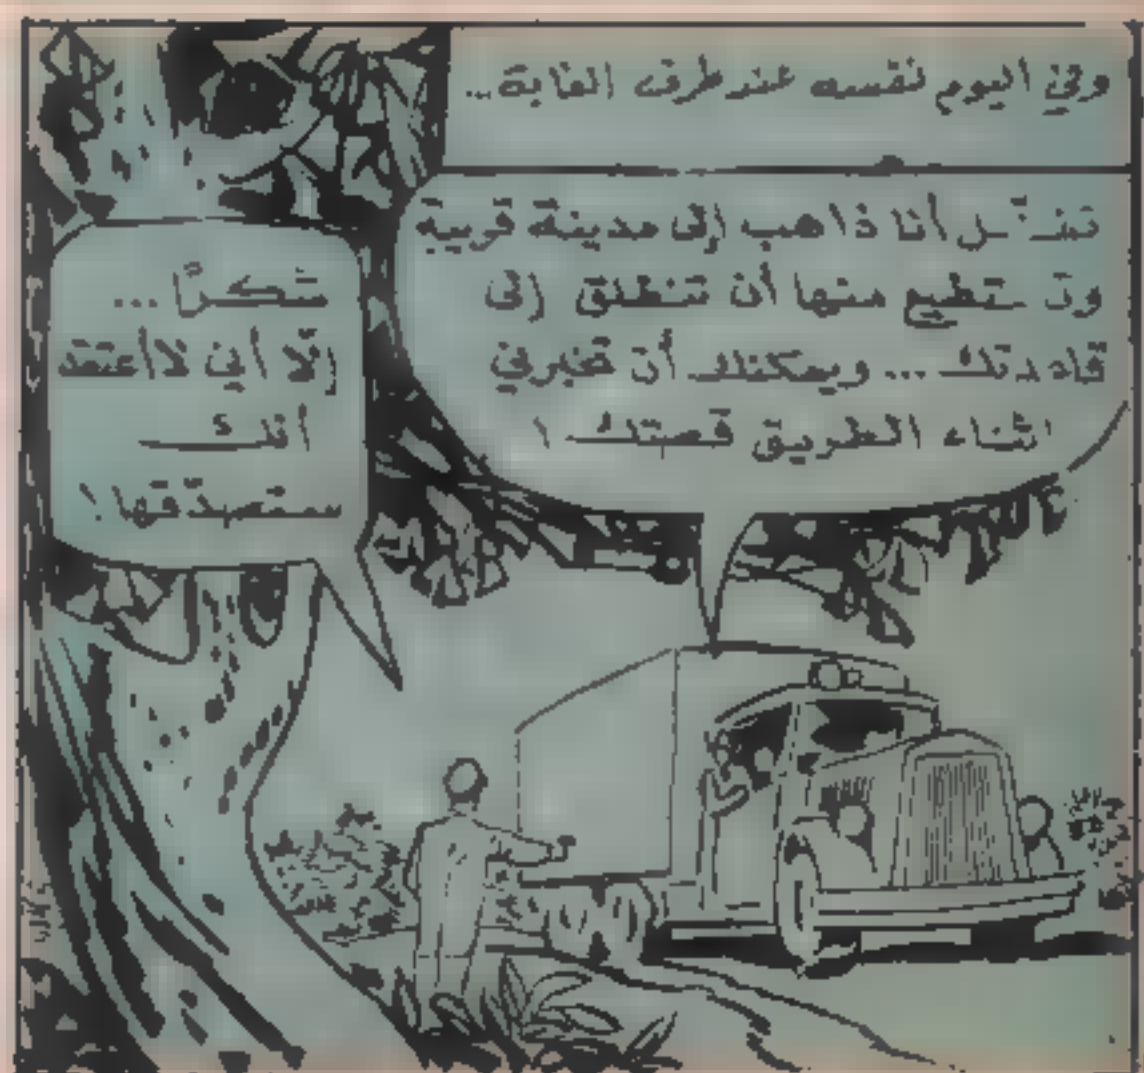 وفي اليوم نفسه عند طرف الغابة...
تفضّل أنا ذاهب إلى مدينة قريبة
وتستطيع منها أن تنطلق إلى
قاعدتك... ويمكنك أن تخبرني
اثناء الطريق قصتك!
شكرًا...
إلّا أني لا أعتقد
أنك
ستصدّقها!